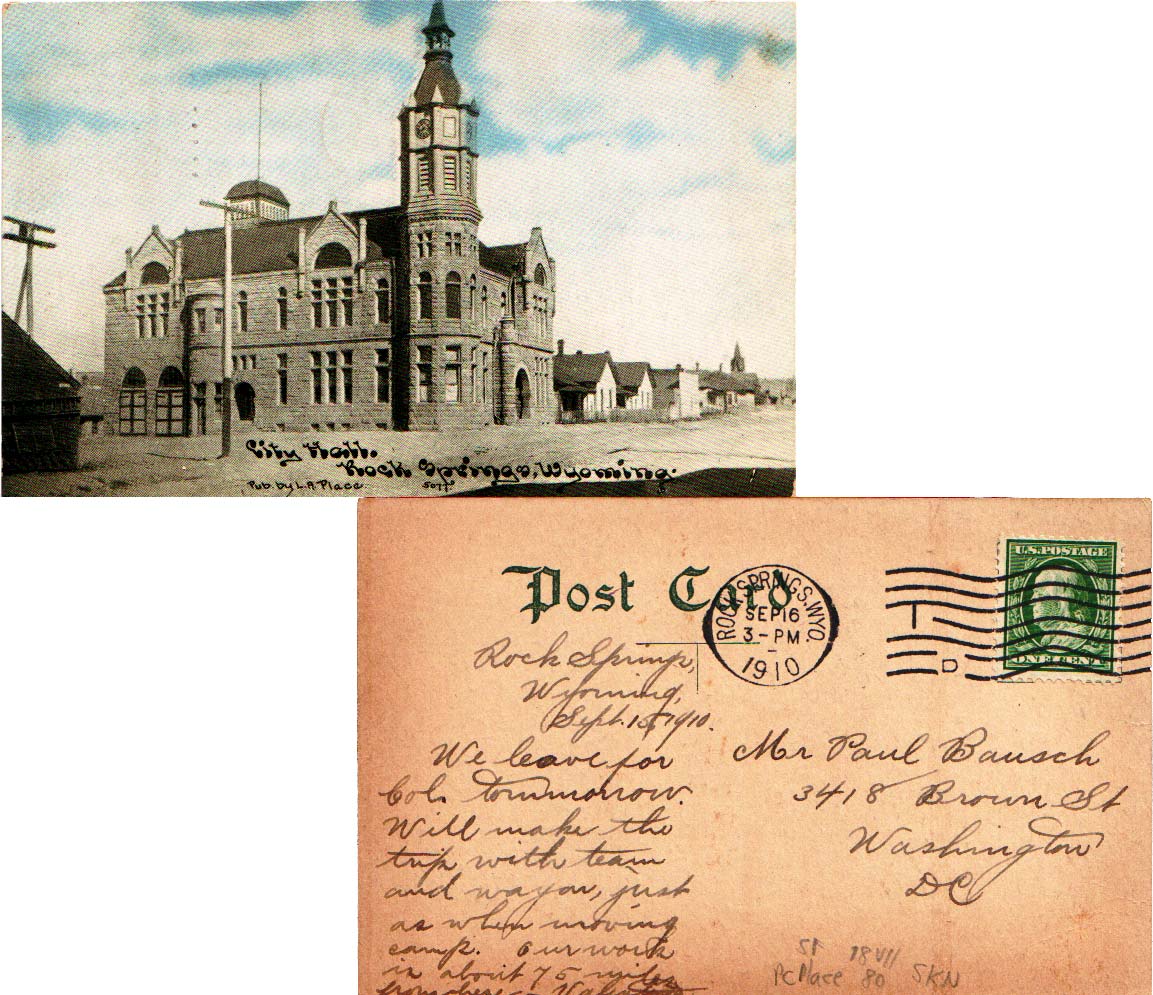 City Hall.
Rock Springs, Wyoming.
Pub. by L.A. Place. 5077.
Post Card
ROCK SPRINGS, WYO.
SEP 16
3-PM
1910
D
U.S. POSTAGE
ONE CENT
Rock Springs,
Wyoming,
Sept. 15, 1910.
We leave for
Col. tommorrow.
Will make the
trip with team
and wagon, just
as when moving
camp. Our work
is about 75 miles
from here
Mr Paul Bausch
3418 Brown St
Washington
DC
PC Place 80 SKN